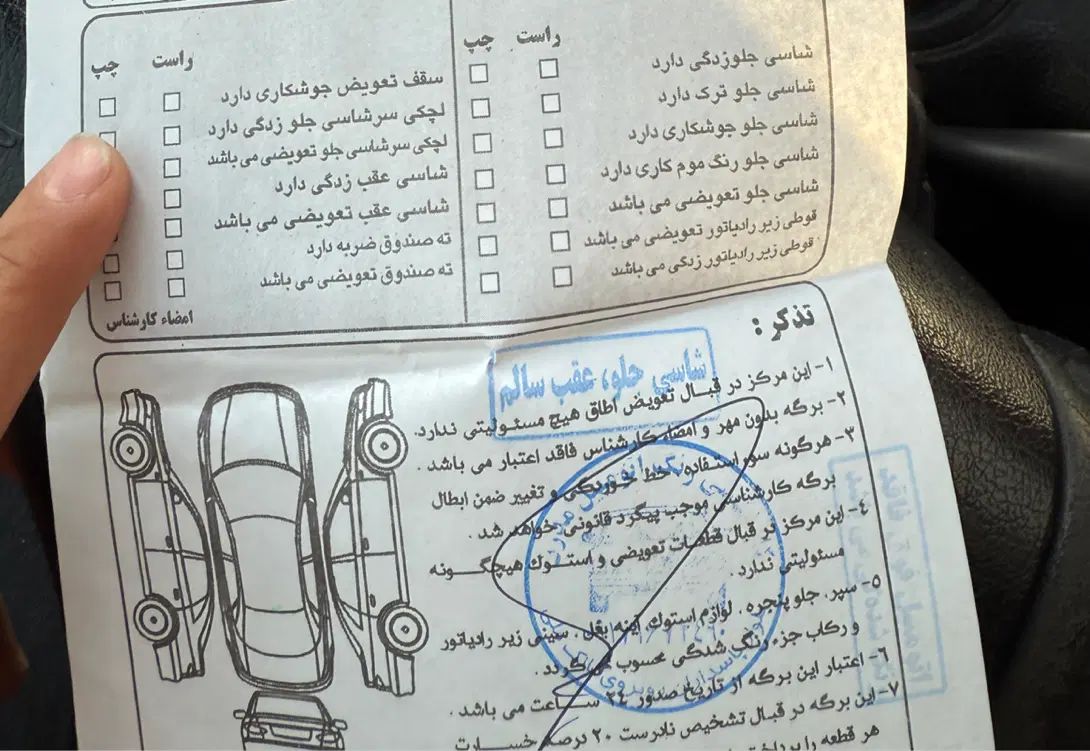 راست چپ
شاسی جلوزدگی دارد
شاسی جلو ترک دارد
شاسی جلو جوشکاری دارد
شاسی جلو رنگ موم کاری دارد
شاسی جلو تعویضی می باشد
قوطی زیر رادیاتور تعویضی می باشد
قوطی زیر رادیاتور زدگی می باشد
راست چپ
سقف تعویض جوشکاری دارد
لچکی سرشاسی جلو زدگی دارد
لچکی سرشاسی جلو تعویضی می باشد
شاسی عقب زدگی دارد
شاسی عقب تعویضی می باشد
ته صندوق ضربه دارد
ته صندوق تعویضی می باشد
امضاء کارشناس
تذکر :
شاسی جلو، عقب سالم
۱- این مرکز در قبال تعویض اطاق هیچ مسئولیتی ندارد.
۲- برگه بدون مهر و امضاء کارشناس فاقد اعتبار می باشد .
۳- هرگونه سوء استفاده، خط خوردگی و تغییر ضمن ابطال
برگه کارشناسی موجب پیگرد قانونی خواهد شد .
۴- این مرکز در قبال قطعات تعویضی و استوک هیچگونه
مسئولیتی ندارد .
۵- سپر، جلو پنجره، لوازم استوک، آینه بغل، سینی زیر رادیاتور
و رکاب جزء رنگ شدگی محسوب می گردد .
۶- اعتبار این برگه از تاریخ صدور ۲۴ ساعت می باشد .
۷- این برگه در قبال تشخیص نادرست ۲۰ درصد خسارت
هر قطعه را